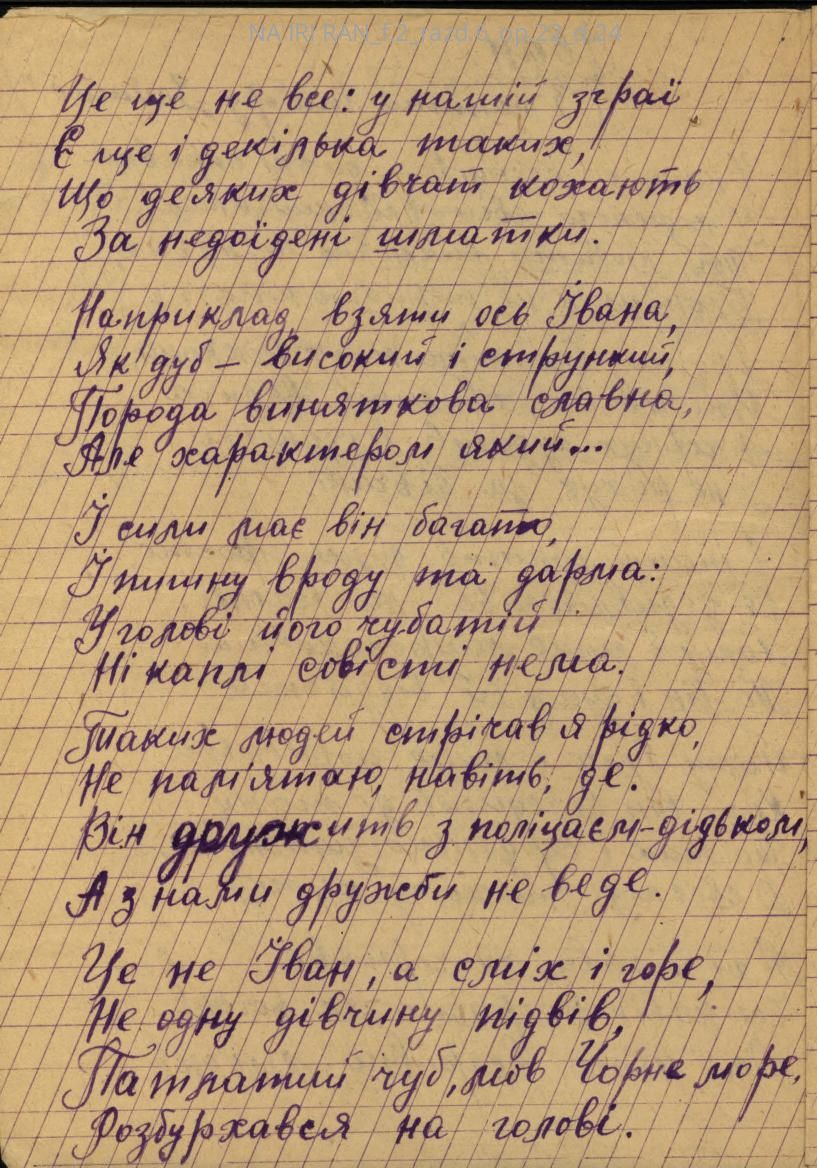 NA IRI RAN_f.2_razd.6_op.22_d.24
Це ще не все: у нашій зграї
Є ще і декілька таких,
Що деяких дівчат кохають
За недоїдені шматки.
Наприклад, взяти ось Івана,
Як дуб – високий і стрункий,
Порода виняткова славна,
Але характером який...
І сили має він багато,
І пишну вроду та дарма:
У голові його чубатій
Ні каплі совісті нема.
Таких людей стрічав я рідко,
Не пам'ятаю, навіть, де.
Він дружить з поліцаєм-дідьком,
А з нами дружби не веде.
Це не Іван, а сміх і горе,
Не одну дівчину підвів,
Патлатий чуб, мов Чорне море,
Розбурхався на голові.